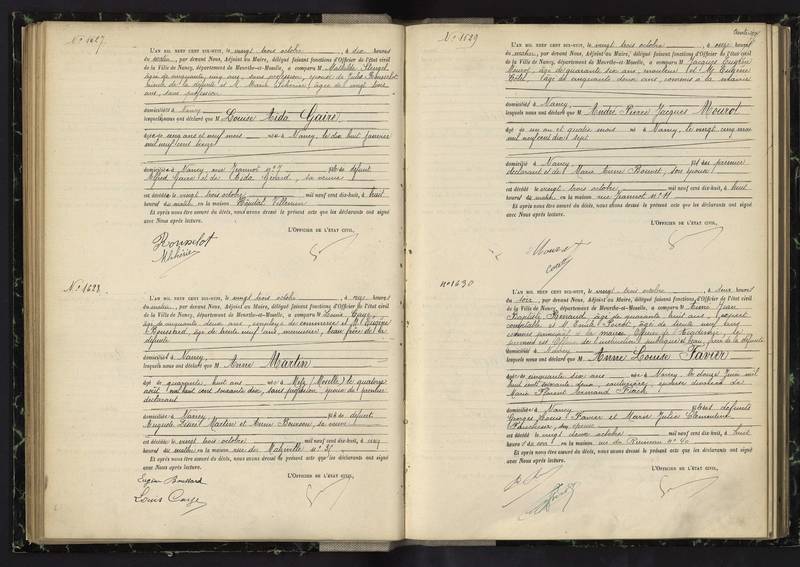 N° 1627
L'AN MIL NEUF CENT DIX-HUIT, le vingt trois octobre, à dix heures
du matin, par devant Nous, Adjoint au Maire, délégué faisant fonctions d'Officier de l'état civil
de la Ville de Nancy, département de Meurthe-et-Moselle, a comparu M Mathilde
âgée de cinquante cinq ans, sans profession, épouse de Jules Rousselot
de la défunte et M Marie âgée de vingt trois
ans, sans profession
domiciliés à Nancy
lesquels nous ont déclaré que M Louise Aida Gairé
âgée de cinq ans et neuf mois née à Nancy, le dix huit janvier
mil neuf cent treize
domiciliée à Nancy, rue Jeannot n° 7 fille de défunt
Alfred Gairé et de Aida Gérard, sa veuve
est décédée le vingt trois octobre mil neuf cent dix-huit, à huit
heures du matin en la maison Hôpital Villemin
Et après nous être assuré du décès, nous avons dressé le présent acte que les déclarants ont signé
avec Nous après lecture.
L'OFFICIER DE L'ÉTAT CIVIL,
Rousselot
N° 1628
L'AN MIL NEUF CENT DIX-HUIT, le vingt trois octobre, à onze heures
du matin, par devant Nous, Adjoint au Maire, délégué faisant fonctions d'Officier de l'état civil
de la Ville de Nancy, département de Meurthe-et-Moselle, a comparu M Louis
âgé de cinquante deux ans, employé de commerce et M Eugène
Boussard, âgé de trente neuf ans, menuisier, beau frère de la
défunte
domiciliés à Nancy
lesquels nous ont déclaré que M Anne Martin
âgée de quarante huit ans née à Metz (Moselle) le quatorze
août mil huit cent soixante dix, sans profession, épouse du premier
déclarant
domiciliée à Nancy fille de défunt
Auguste Martin et Anne Busson, sa veuve
est décédée le vingt trois octobre mil neuf cent dix-huit, à
heures du matin en la maison rue de Malzéville n°
Et après nous être assuré du décès, nous avons dressé le présent acte que les déclarants ont signé
avec Nous après lecture.
L'OFFICIER DE L'ÉTAT CIVIL,
Eugène Boussard
Louis
N° 1629
L'AN MIL NEUF CENT DIX-HUIT, le vingt trois octobre, à onze heures
du matin, par devant Nous, Adjoint au Maire, délégué faisant fonctions d'Officier de l'état civil
de la Ville de Nancy, département de Meurthe-et-Moselle, a comparu M Jacques Eugène
Mourot, âgé de quarante six ans, et M Eugène
âgé de cinquante deux ans, commis à la mairie
domiciliés à Nancy
lesquels nous ont déclaré que M André Pierre Jacques Mourot
âgé de un an et quatre mois né à Nancy, le vingt cinq mai
mil neuf cent dix sept
domicilié à Nancy fils de premier
déclarant et de Marie Anne Bonnet, son épouse
est décédé le vingt trois octobre mil neuf cent dix-huit, à huit
heures du matin en la maison rue Jeannot n° 11
Et après nous être assuré du décès, nous avons dressé le présent acte que les déclarants ont signé
avec Nous après lecture.
L'OFFICIER DE L'ÉTAT CIVIL,
Mourot
N° 1630
L'AN MIL NEUF CENT DIX-HUIT, le vingt trois octobre, à deux heures
du soir, par devant Nous, Adjoint au Maire, délégué faisant fonctions d'Officier de l'état civil
de la Ville de Nancy, département de Meurthe-et-Moselle, a comparu M Henri Jean
Baptiste Renaud, âgé de quarante huit ans, expert
comptable et M Emile âgé de trente neuf ans
domiciliés à Nancy
lesquels nous ont déclaré que M Anne Louise Favier
âgée de cinquante six ans née à Nancy, le douze juin mil
huit cent soixante deux, divorcée de
Marie Florent
domiciliée à Nancy fille des défunts
Georges Louis Favier et Marie Julie Clémentine
son épouse
est décédée le vingt deux octobre mil neuf cent dix-huit, à huit
heures du soir en la maison rue du n° 40
Et après nous être assuré du décès, nous avons dressé le présent acte que les déclarants ont signé
avec Nous après lecture.
L'OFFICIER DE L'ÉTAT CIVIL,